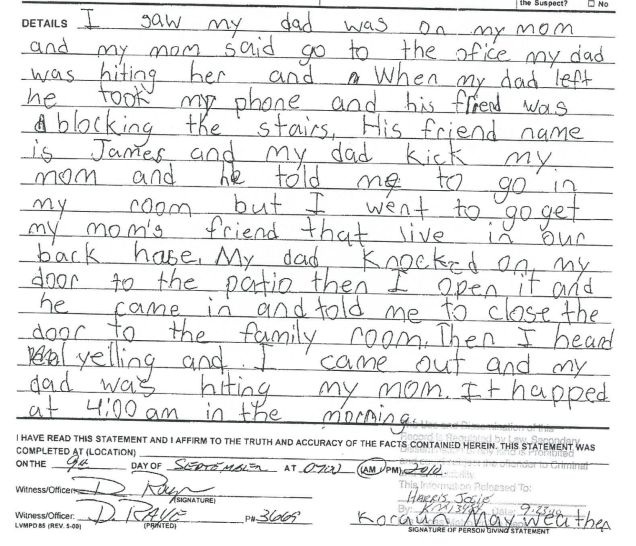 the Suspect? ☐ No
DETAILS I saw my dad was on my mom
and my mom said go to the ofice my dad
was hiting her and When my dad left
he took my phone and his friend was
blocking the stairs, His friend name
is James and my dad kick my
mom and he told me to go in
my room but I went to go get
my mom's friend that live in our
back hase. My dad knocked on my
door to the patio then I open it and
he came in and told me to close the
door to the family room. Then I heard
yelling and I came out and my
dad was hiting my mom. It happed
at 4:00 am in the morning.
I HAVE READ THIS STATEMENT AND I AFFIRM TO THE TRUTH AND ACCURACY OF THE FACTS CONTAINED HEREIN. THIS STATEMENT WAS
COMPLETED AT (LOCATION)
ON THE 9th DAY OF SEPTEMBER AT 0700 (AM / PM), 2010.
This Information Released To:
Witness/Officer: (SIGNATURE)
HARRIS, JOSIE
By: Date:
Witness/Officer: D. RAVE P# 3669 Koraun Mayweather
(PRINTED) SIGNATURE OF PERSON GIVING STATEMENT
LVMPD 85 (REV. 5-00)